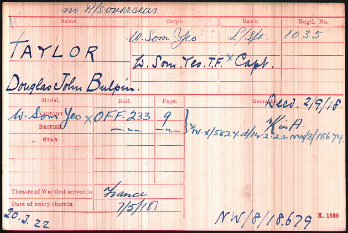 in H/S overseas
Name. Corps. Rank. Regtl. No.
TAYLOR W. Som Yeo L/Sjt. 1035
W. Som. Yeo. T.F. x Capt.
Douglas John Bulpin.
Medal. Roll. Page. Remarks. Decd. 2/9/18
VICTORY W. Som Yeo x OFF. 233 9 K in A.
BRITISH -"- -"-
STAR
Theatre of War first served in France
Date of entry therein 7/5/18
20.3.22 NW/8/18679 K. 1380